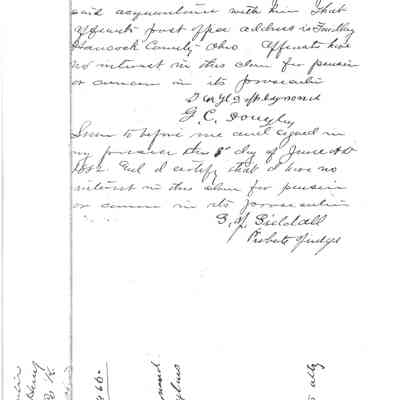 said acquaintance with him that
affiants post office address is Findlay
Hancock County Ohio Affiants have
no interest in this claim for pension
or concern in its prosecution
G. C. Doughty
Sworn to before me and signed in
my presence this day of June AD
And I certify that I have no
interest in this claim for pension
or concern in its prosecution
S. J. Siddall
Probate Judge